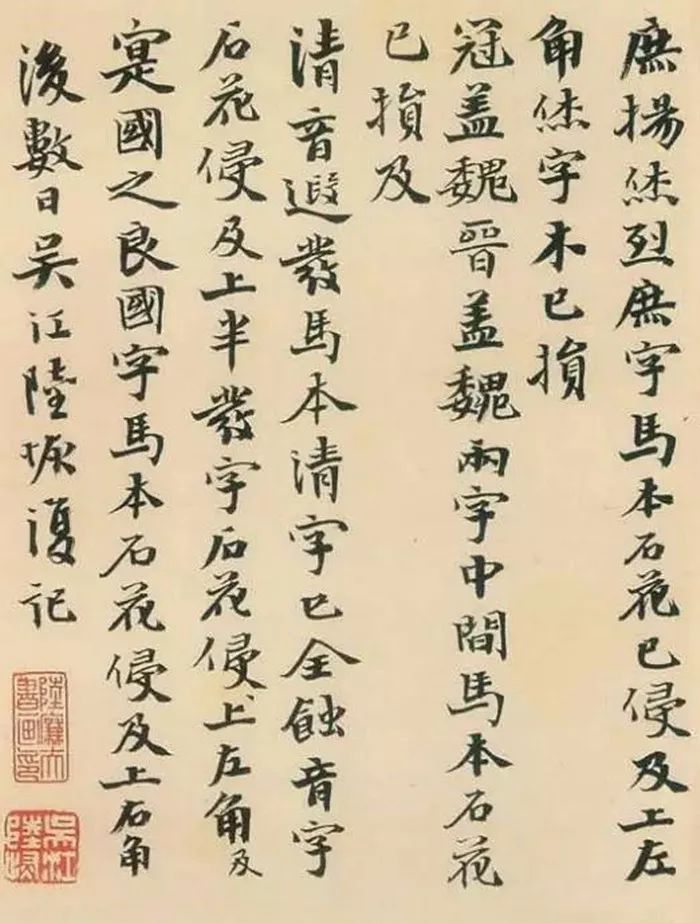 庶揚烋烈庶字馬本石花已侵及上左
角烋字木已損
冠盖魏晉盖魏兩字中間馬本石花
已損及
清音遐發馬本清字已全蝕音字
石花侵及上半發字石花侵上左角及
寔國之良國字馬本石花侵及上右角
後數日吳江陸恢復記
陸廉夫
書画印
吳江
陸恢